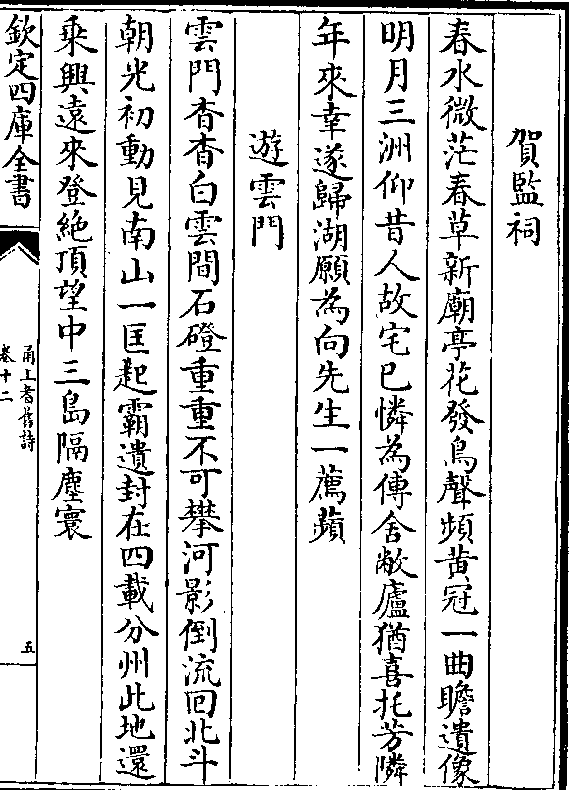 賀監祠
春水微茫春草新廟亭花發鳥聲頻黄冠一曲瞻遺像
明月三洲仰昔人故宅已憐為傳舍敝廬猶喜托芳隣
年來幸遂歸湖願為向先生一薦蘋
遊雲門
雲門杳杳白雲間石磴重重不可攀河影倒流回北斗
朝光初動見南山一匡起霸遺封在四載分州此地還
乘興遠來登絶頂望中三島隔塵寰
欽定四庫全書
甬上耆舊詩
卷十二
五